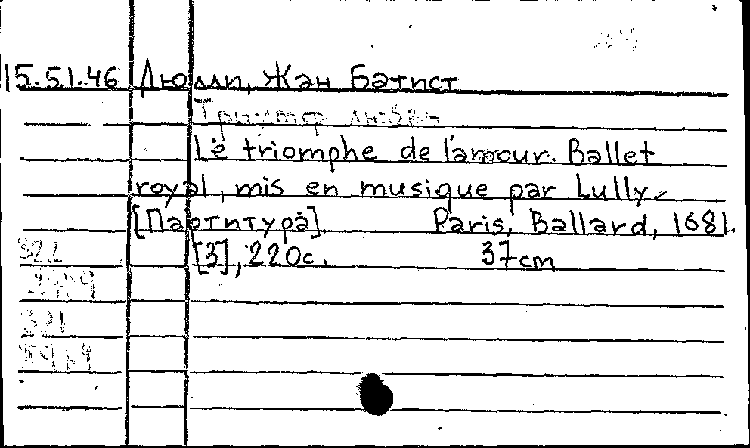 15.51.46 Люлли, Жан Батист
Триумф любви
Le triomphe de l'amour. Ballet
royal, mis en musique par Lully.
[Партитура]. Paris, Ballard, 1681.
[3], 220с. 37cm